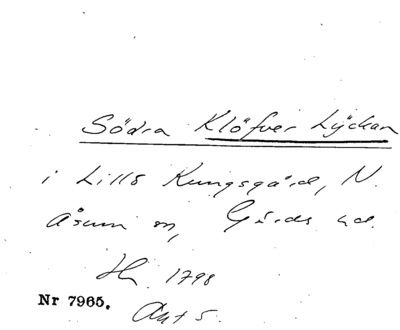 Södra Klöfver Lyckan
i Lilla Kungsgård, N.
Åsum sn, Gärds hd.
Hn. 1798
Nr 7965. Akt 5.